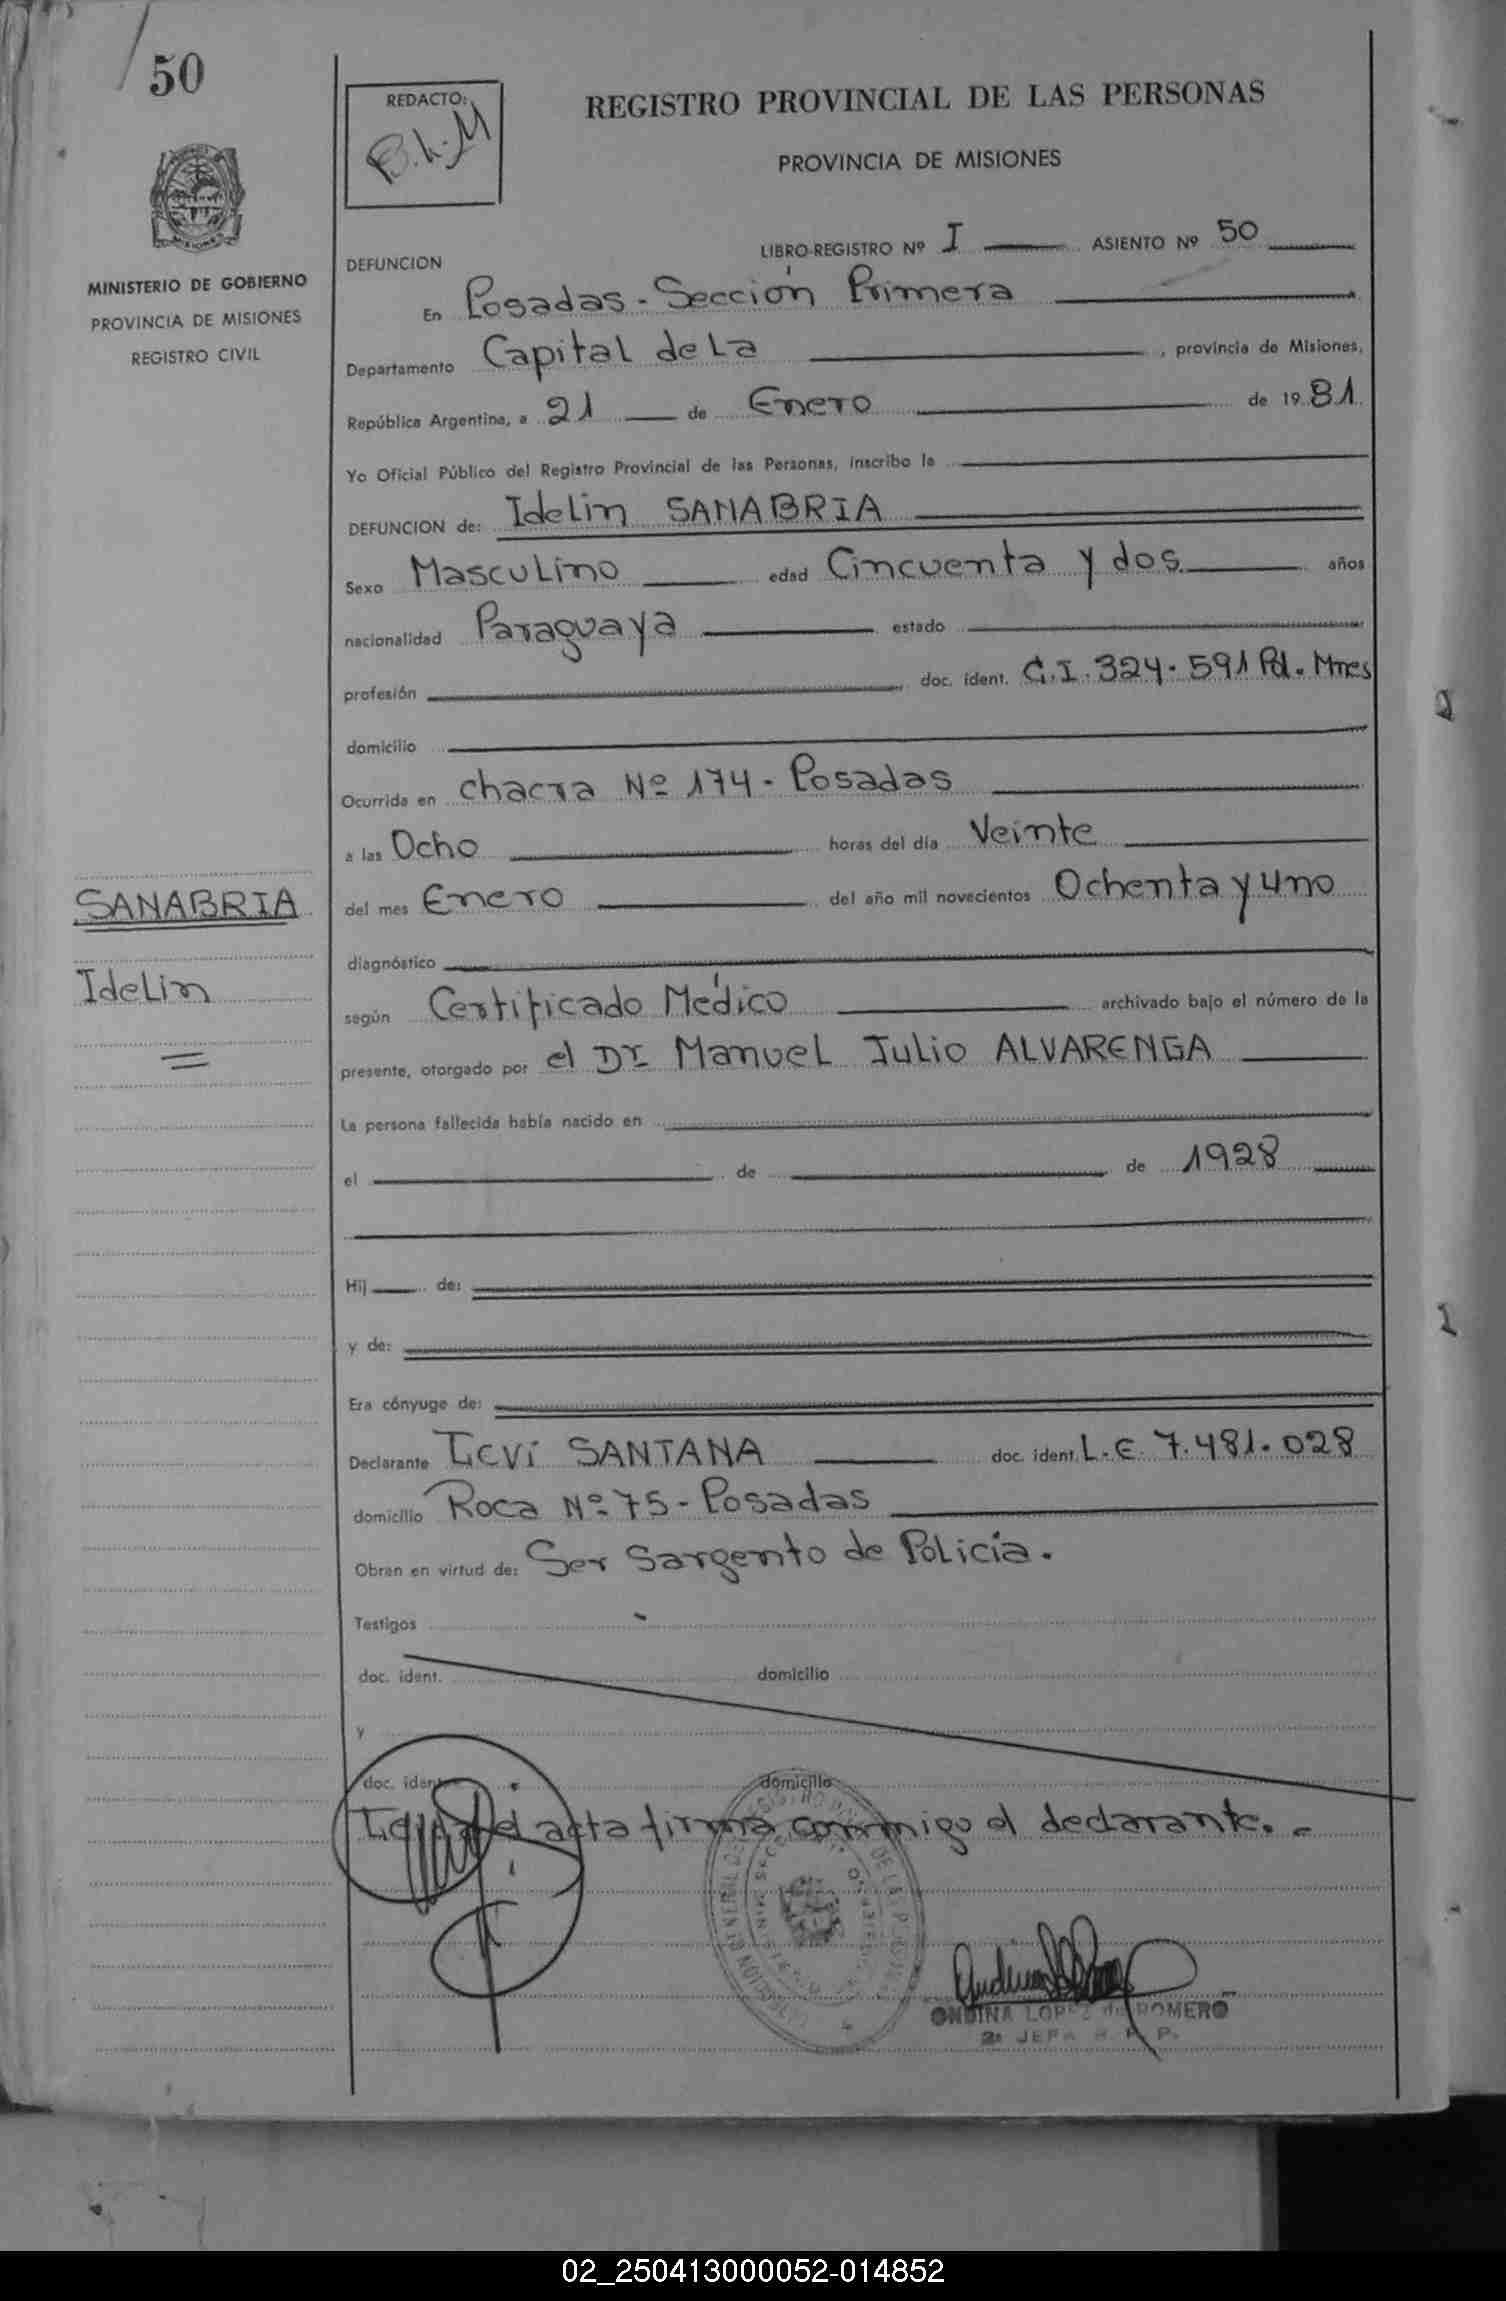 50
REDACTO:
B.L.M
REGISTRO PROVINCIAL DE LAS PERSONAS
PROVINCIA DE MISIONES
MINISTERIO DE GOBIERNO
PROVINCIA DE MISIONES
REGISTRO CIVIL
LIBRO-REGISTRO Nº I ASIENTO Nº 50
DEFUNCION
En Posadas - Sección Primera
Departamento Capital de La , provincia de Misiones,
República Argentina, a 21 de Enero de 1981
Yo Oficial Público del Registro Provincial de las Personas, inscribo la
DEFUNCION de: Idelin SANABRIA
Sexo Masculino edad Cincuenta y dos años
nacionalidad Paraguaya estado
profesión doc. ident. C.I. 324.591 Pol. Mnes
domicilio
Ocurrida en chacra Nº 174 - Posadas
a las Ocho horas del día Veinte
del mes Enero del año mil novecientos Ochenta y uno
SANABRIA
Idelin
diagnóstico
según Certificado Médico archivado bajo el número de la
presente, otorgado por el Dr Manuel Julio ALVARENGA
La persona fallecida había nacido en
el de de 1928
Hij de:
y de:
Era cónyuge de:
Declarante Levi SANTANA doc. ident. L.E. 7.481.028
domicilio Roca Nº 75 - Posadas
Obran en virtud de: Ser Sargento de Policía.
Testigos
doc. ident. domicilio
y
doc. ident. domicilio
el acta firma conmigo el declarante.
ONDINA LOPEZ de ROMERO
2ª JEFA R. P. P.
02_250413000052-014852